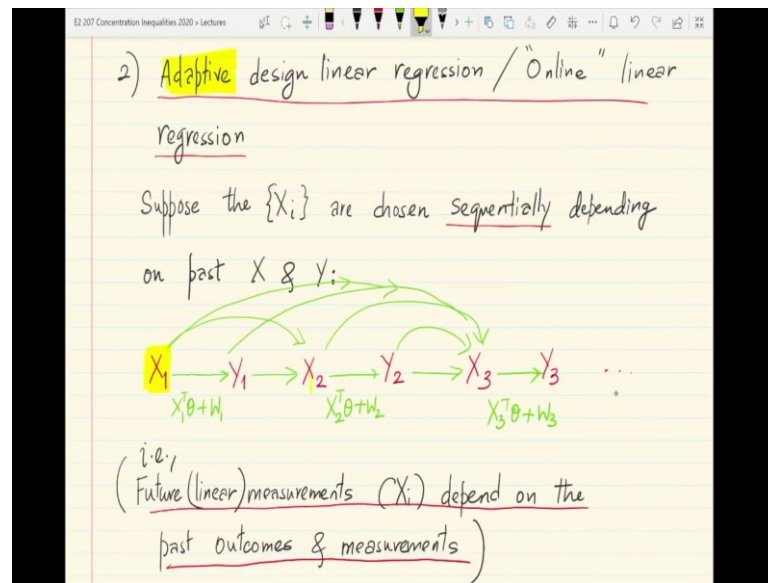 E2 207 Concentration Inequalities 2020 » Lectures
2) Adaptive design linear regression / "Online" linear
regression
Suppose the {X_i} are chosen sequentially depending
on past X & Y:
X₁ → Y₁ → X₂ → Y₂ → X₃ → Y₃ ...
X₁ᵀθ+W₁ X₂ᵀθ+W₂ X₃ᵀθ+W₃
i.e.,
(Future (linear) measurements (X_i) depend on the
past outcomes & measurements)